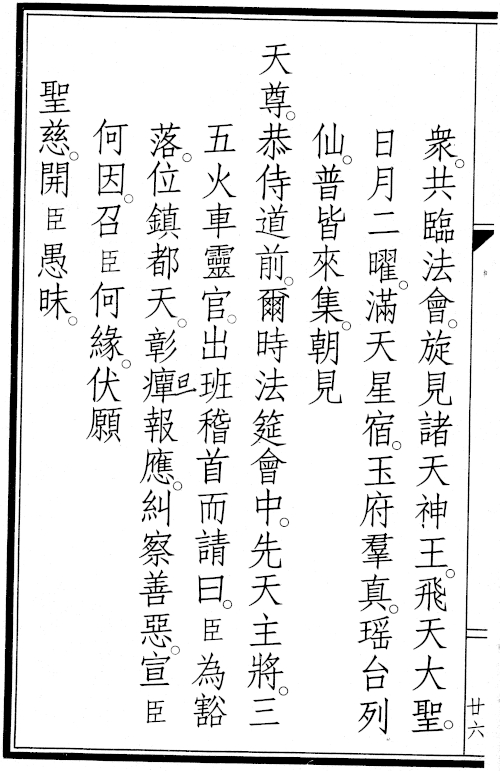 衆。共臨法會。旋見諸天神王。飛天大聖。
日月二曜。滿天星宿。玉府羣真。瑶台列
仙。普皆來集。朝見
天尊。恭侍道前。爾時法筵會中。先天主將。三
五火車靈官。出班稽首而請曰。臣為豁
落。位鎮都天。彰癉報應。糾察善惡。宣臣
何因。召臣何緣。伏願
聖慈。開臣愚昧。
廿六